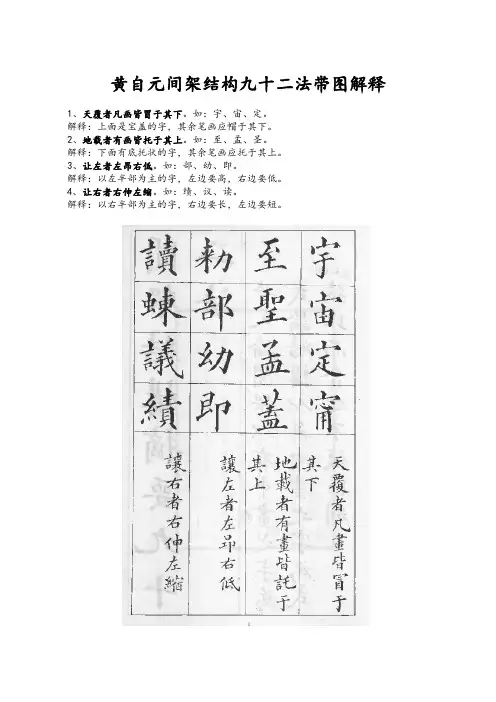 黄自元间架结构九十二法带图解释
1、天覆者凡画皆冒于其下。如：宇、宙、定。
解释：上面是宝盖的字，其余笔画应帽于其下。
2、地载者有画皆托于其上。如：至、孟、圣。
解释：下面有底托状的字，其余笔画应托于其上。
3、让左者左昂右低。如：部、幼、即。
解释：以左半部为主的字，左边要高，右边要低。
4、让右者右伸左缩。如：绩、议、读。
解释：以右半部为主的字，右边要长，左边要短。
宇宙定甯
天覆者凡畫皆冒于
其下
至聖孟蓋
地載者有畫皆託于
其上
勑部幼即
讓左者左昂右低
讀蝀議績
讓右者右伸左縮